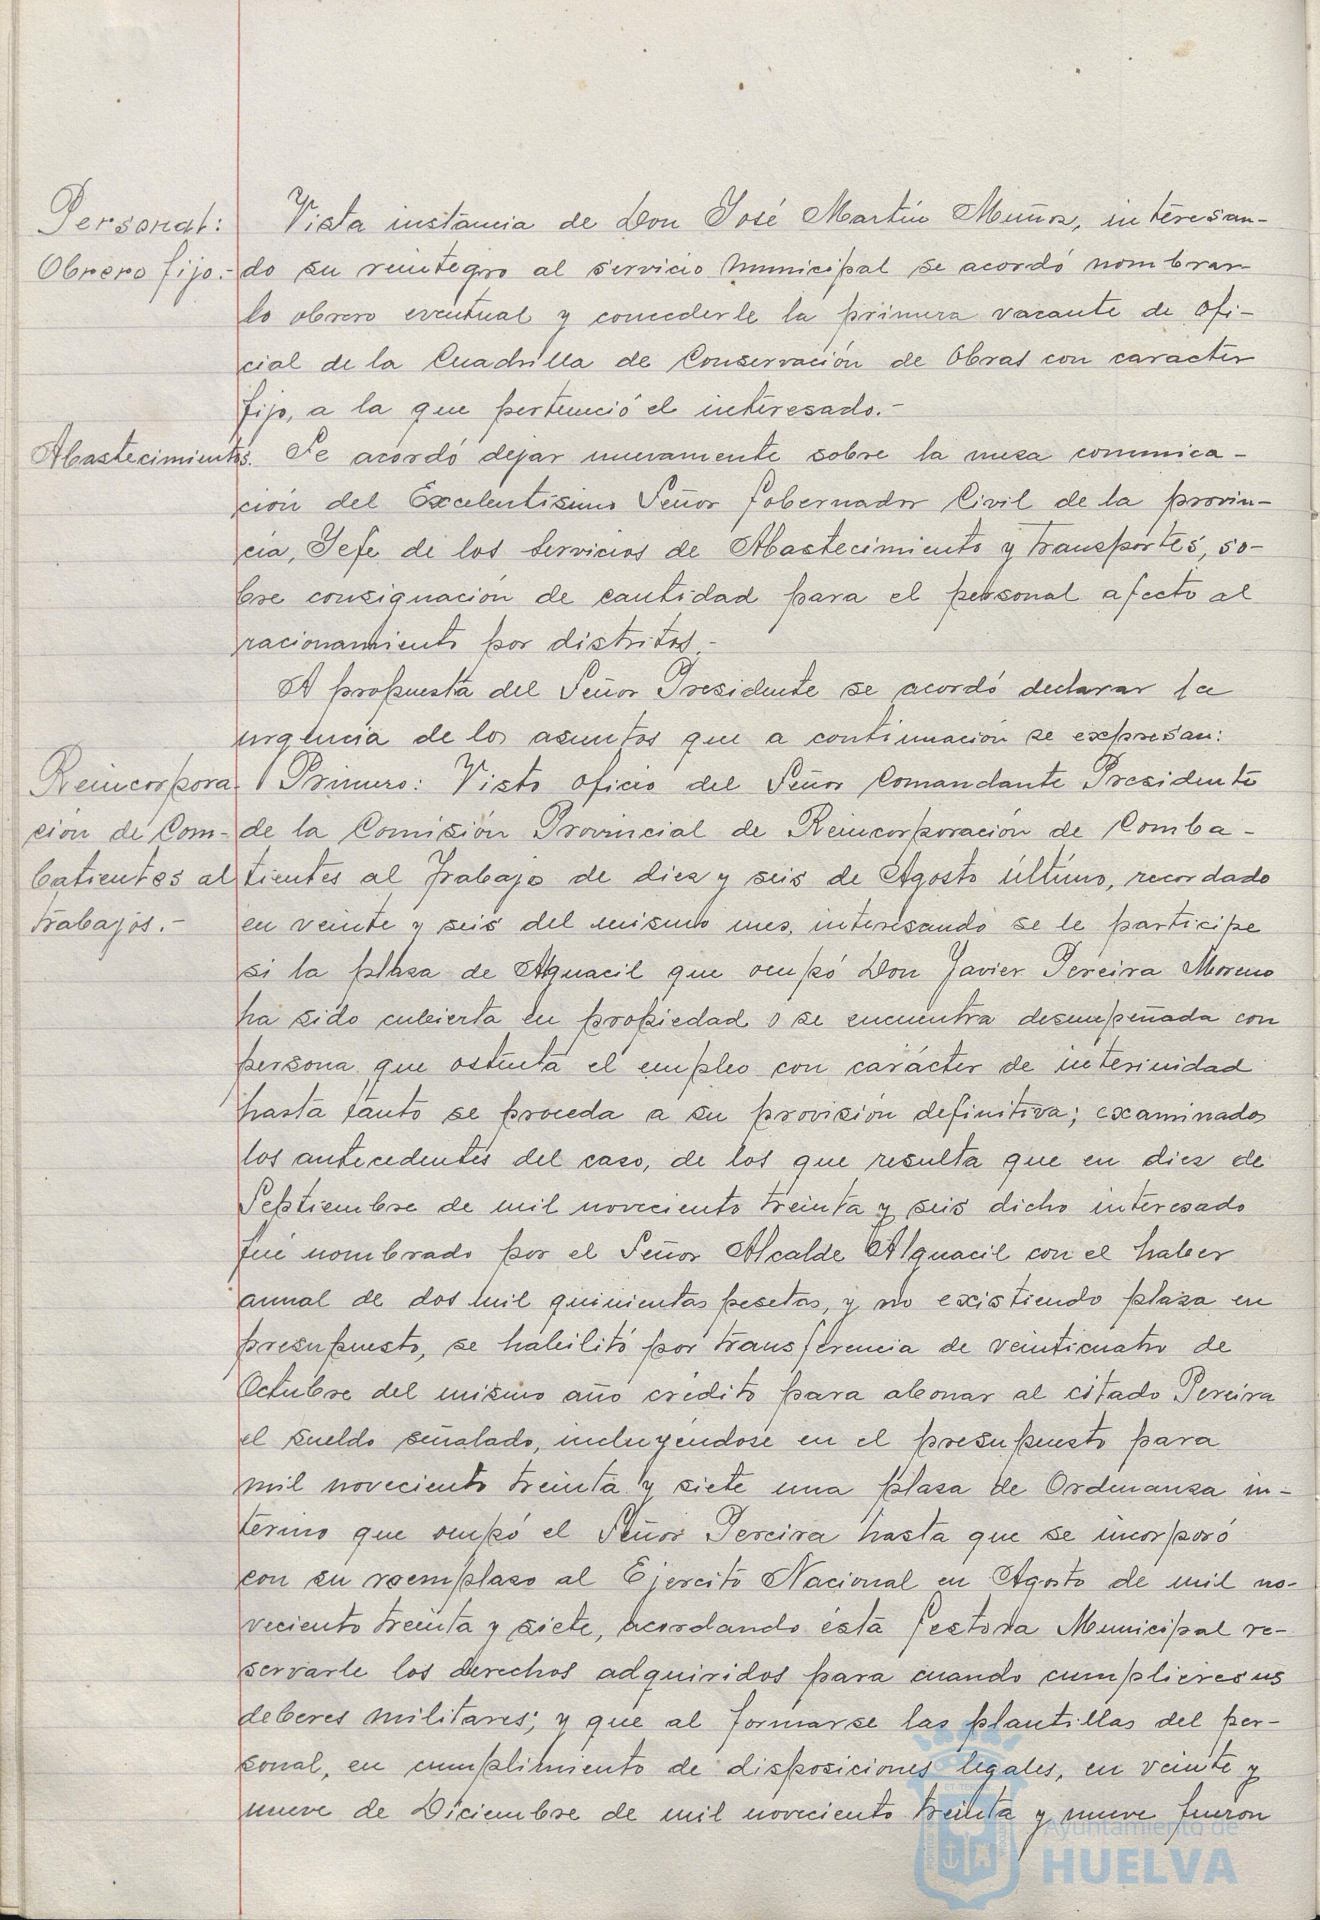 Personal:
Obrero fijo.-
Vista instancia de Don José Martín Muñoz, interesan-
do su reintegro al servicio municipal se acordó nombrar-
lo obrero eventual y concederle la primera vacante de ofi-
cial de la Cuadrilla de Conservación de Obras con caracter
fijo, a la que perteneció el interesado.-
Abastecimientos.
Se acordó dejar nuevamente sobre la mesa comunica-
ción del Excelentísimo Señor Gobernador Civil de la provin-
cia, Jefe de los Servicios de Abastecimiento y Transportes, so-
bre consignación de cantidad para el personal afecto al
racionamiento por distritos.-
A propuesta del Señor Presidente se acordó declarar la
urgencia de los asuntos que a continuación se expresan:
Reincorpora-
ción de Com-
batientes al
trabajos.-
Primero: Visto oficio del Señor Comandante Presidente
de la Comisión Provincial de Reincorporación de Comba-
tientes al Trabajo de diez y seis de Agosto último, recordado
en veinte y seis del mismo mes, interesando se le participe
si la plaza de Alguacil que ocupó Don Javier Pereira Moreno
ha sido cubierta en propiedad o se encuentra desempeñada con
persona que ostenta el empleo con carácter de interinidad
hasta tanto se proceda a su provisión definitiva; examinados
los antecedentes del caso, de los que resulta que en diez de
Septiembre de mil noveciento treinta y seis dicho interesado
fué nombrado por el Señor Alcalde Alguacil con el haber
anual de dos mil quinientas pesetas, y no existiendo plaza en
presupuesto, se habilitó por transferencia de veinticuatro de
Octubre del mismo año crédito para abonar al citado Pereira
el sueldo señalado, incluyéndose en el presupuesto para
mil noveciento treinta y siete una plaza de Ordenanza in-
terino que ocupó el Señor Pereira hasta que se incorporó
con su reemplazo al Ejercito Nacional en Agosto de mil no-
veciento treinta y siete, acordando ésta Gestora Municipal re-
servarle los derechos adquiridos para cuando cumpliere sus
deberes militares; y que al formarse las plantillas del per-
sonal, en cumplimiento de disposiciones legales, en veinte y
nueve de Diciembre de mil noveciento treinta y nueve fueron
Ayuntamiento de
HUELVA